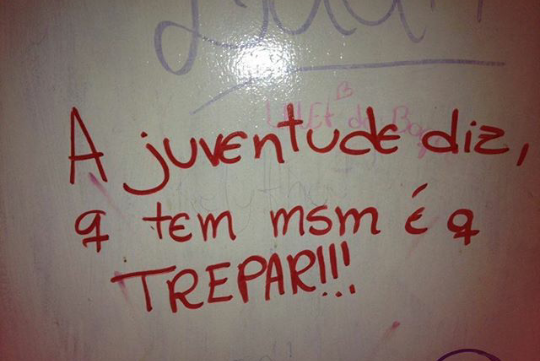 A juventude diz,
q tem msm é q
TREPAR!!!